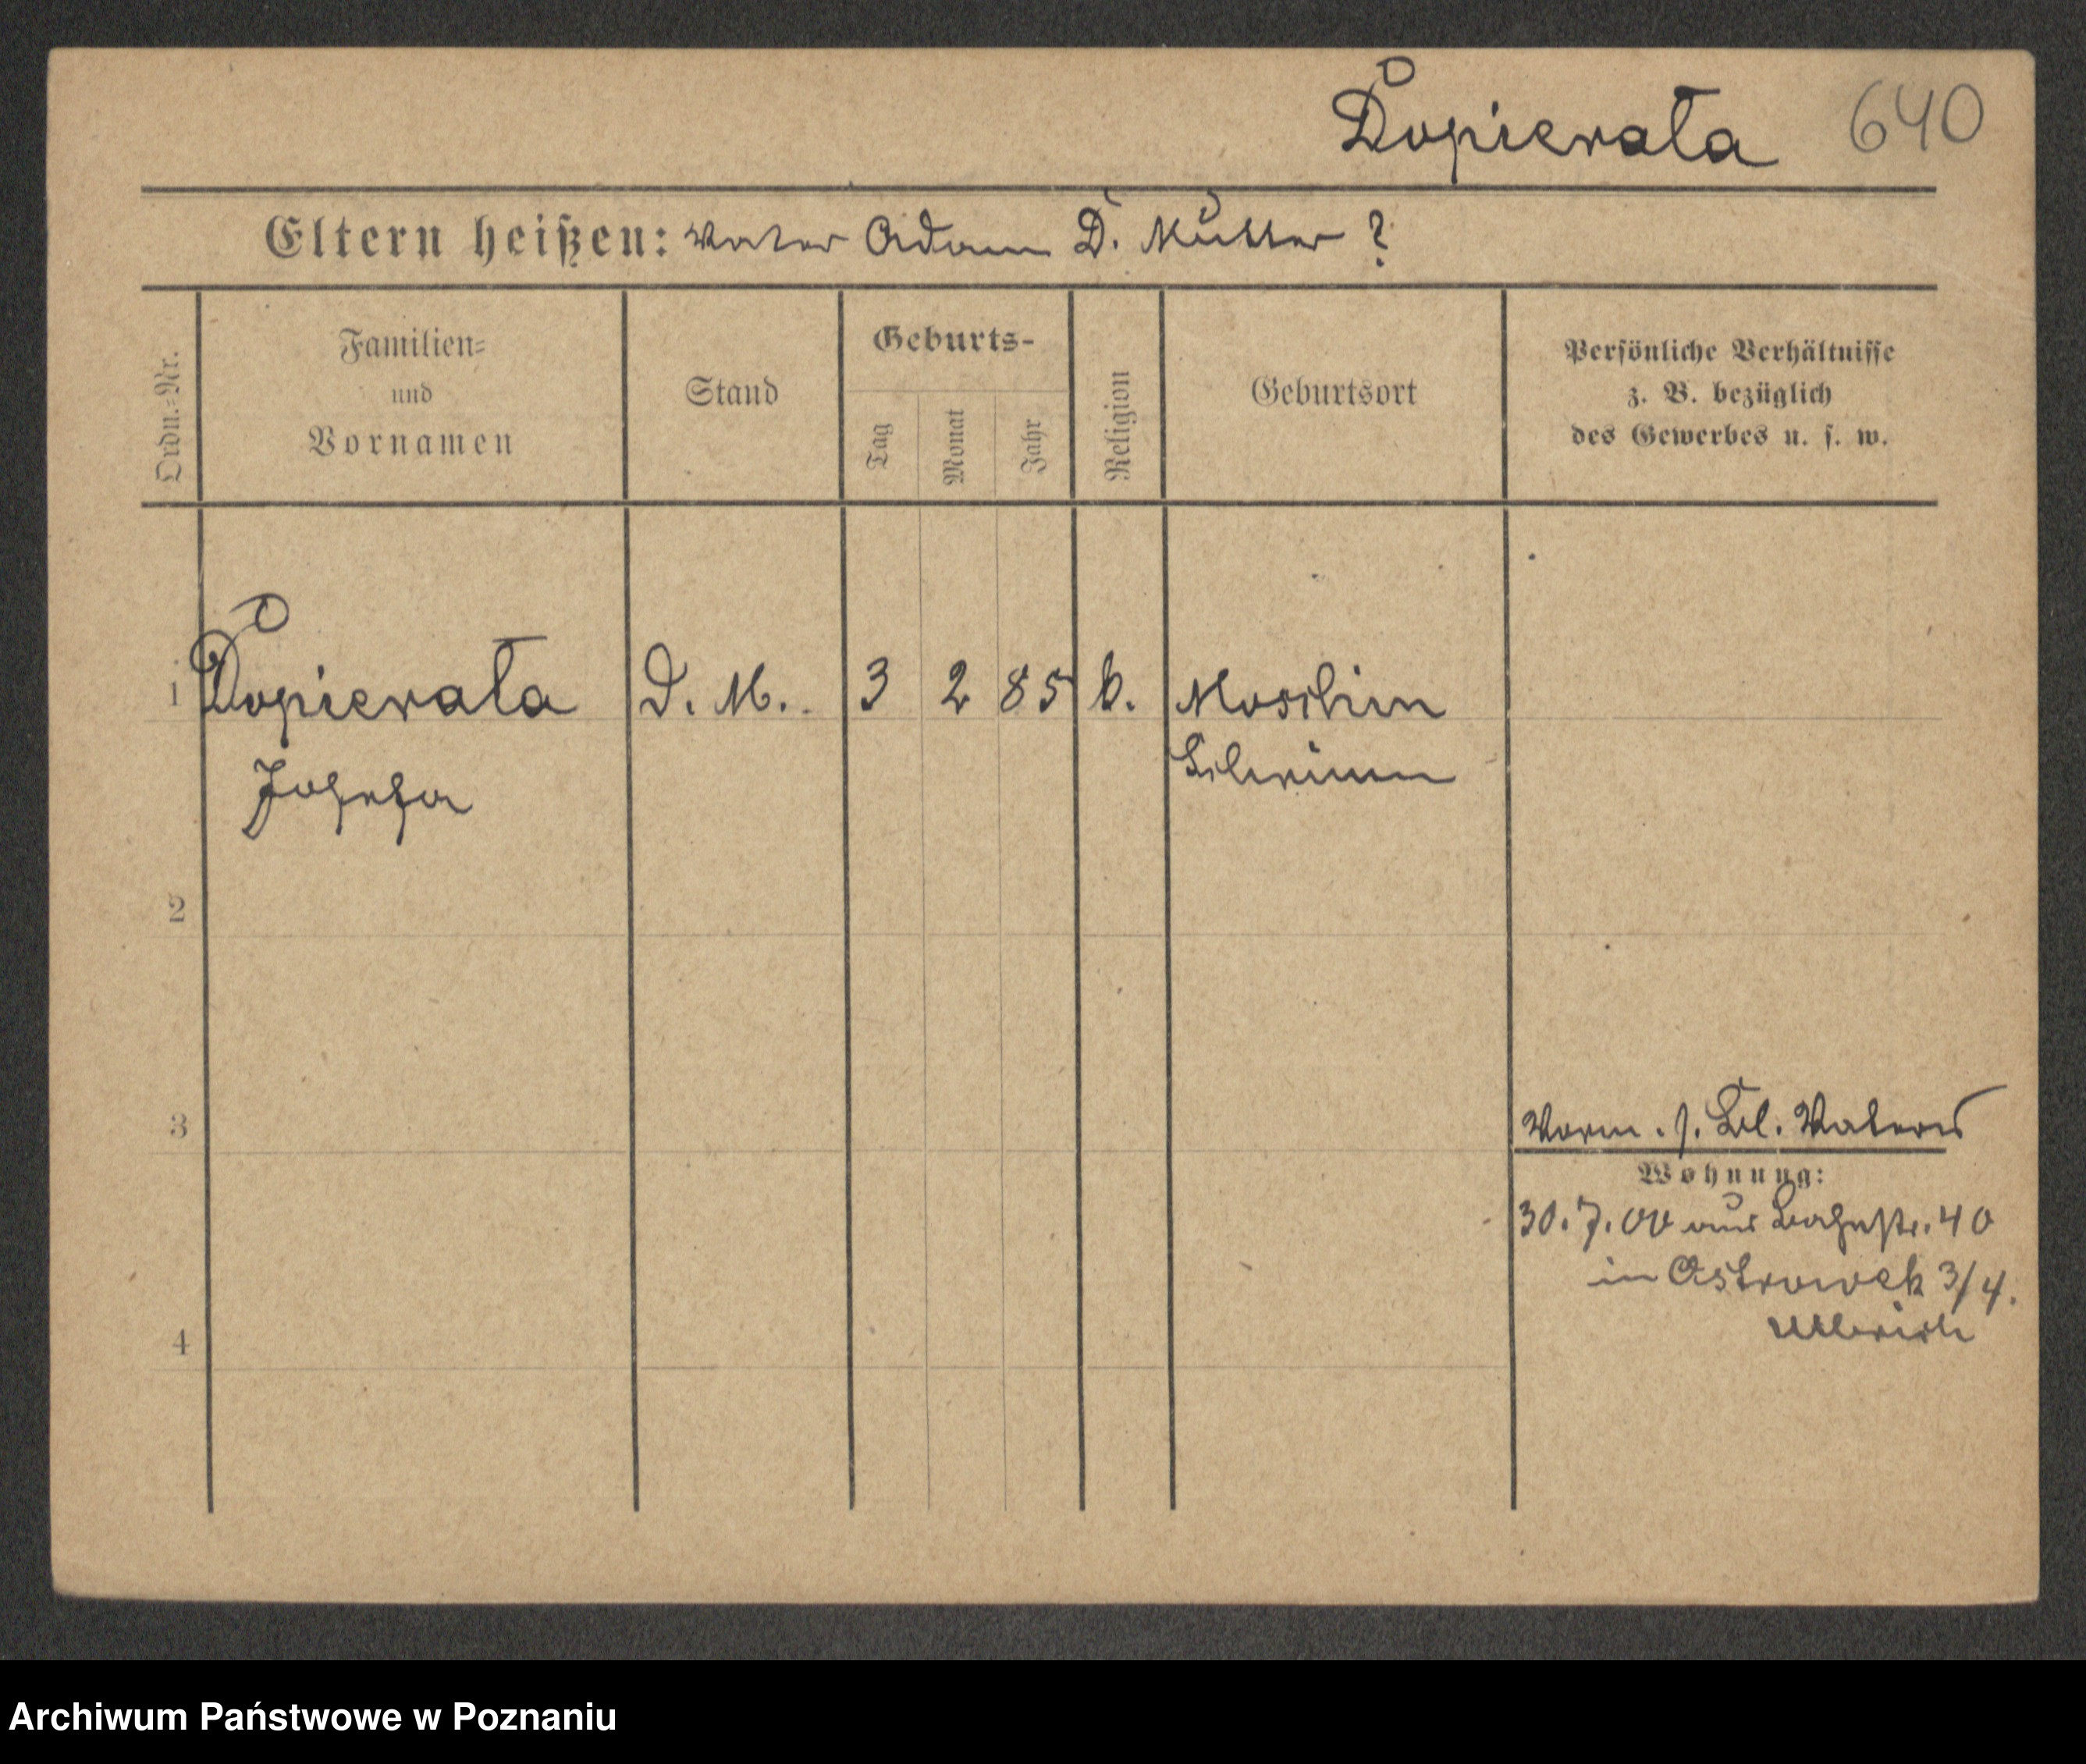 Dopierała 640
Eltern heißen: Vater Adam D. Mutter ?
Ordn.-Nr.
Familien- und Vornamen
Stand
Geburts-
Tag
Monat
Jahr
Religion
Geburtsort
Persönliche Verhältnisse
z. B. bezüglich
des Gewerbes u. s. w.
1 Dopierała D. M. 3 2 85 k. Moschin
Josefa Schrimm
2
3
Verm. s. Bl. Vaters
Wohnung:
30. 7. 00 aus Bahnstr. 40
in Ostrowek 3/4.
4
Archiwum Państwowe w Poznaniu